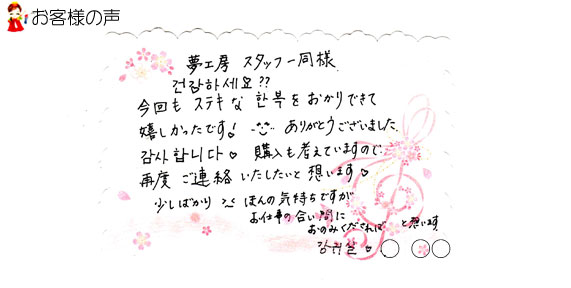 お客様の声
夢工房 スタッフ一同様
건강하세요??
今回も ステキな 한복を おかりできて
嬉しかったです! ありがとうございました.
감사합니다♡ 購入も考えていますので
再度 ご連絡いたしたいと 想います♡
少しばかり ほんの気持ちですが
お仕事の合い間に
おのみくだされば と想います